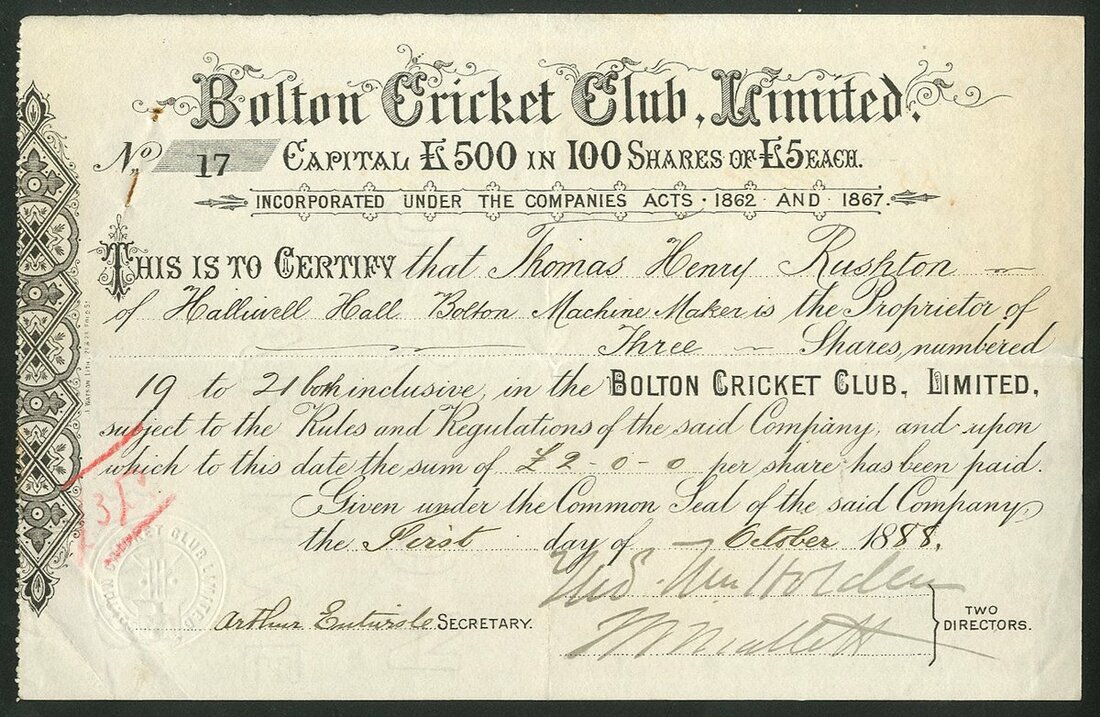 Bolton Cricket Club, Limited.
No. 17 CAPITAL £500 IN 100 SHARES OF £5 EACH.
INCORPORATED UNDER THE COMPANIES ACTS · 1862 · AND · 1867.
THIS IS TO CERTIFY that Thomas Henry Rushton
of Halliwell Hall Bolton Machine Maker is the Proprietor of
Three Shares, numbered
19 to 21 both inclusive, in the BOLTON CRICKET CLUB, LIMITED,
subject to the Rules and Regulations of the said Company, and upon
which to this date the sum of £2-0-0 per share has been paid.
Given under the Common Seal of the said Company,
the First day of October 1888.
Holden
Arthur Entwisle SECRETARY.
TWO
DIRECTORS.
BOLTON CRICKET CLUB LIMITED